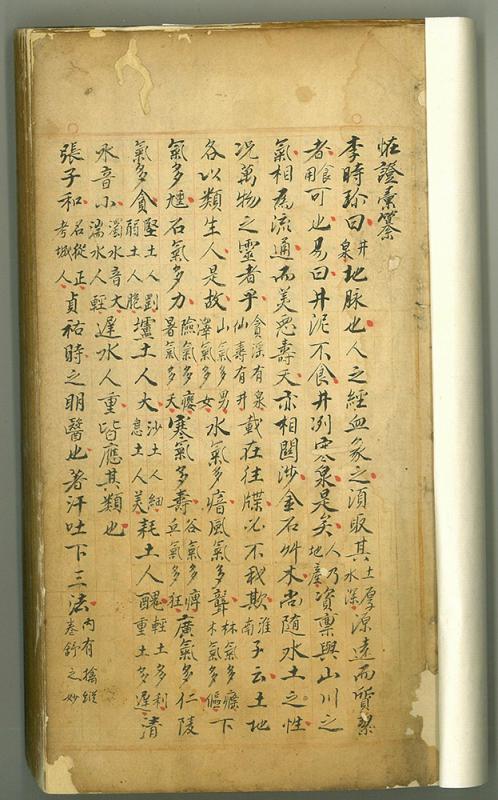 恠證
李時珍曰井泉地脉也人之經血象之須取其土厚水深源遠而質潔
者食用可也易曰井泥不食井冽寒泉是矣人乃地產資禀與山川之
氣相為流通而美惡壽夭亦相關涉金石艸木尚隨水土之性
况萬物之靈者乎貪淫有泉仙壽有井載在往牒必不我欺淮南子云土地
各以類生人是故山氣多男澤氣多女水氣多瘖風氣多聾林氣多癃木氣多傴下
氣多尰石氣多力險氣多癭暑氣多夭寒氣多壽谷氣多痹丘氣多狂廣氣多仁陵
氣多貪堅土人剛弱土人脆壚土人大沙土人細息土人美耗土人醜輕土多利重土多遲清
水音小濁水音大湍水人輕遲水人重皆應其類也
張子和名從正考城人貞祐時之明醫也著汗吐下三法内有擒縱卷舒之妙